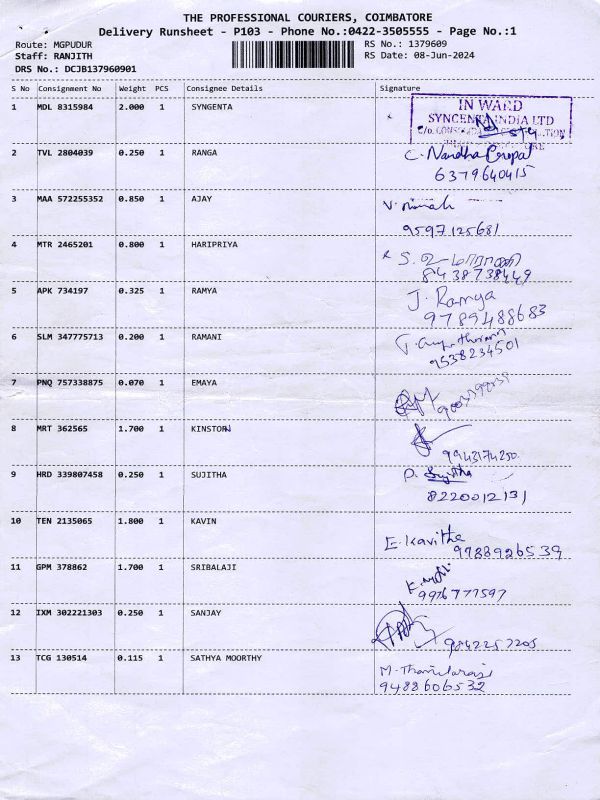 THE PROFESSIONAL COURIERS, COIMBATORE
Delivery Runsheet - P103 - Phone No.:0422-3505555 - Page No.:1
Route: MGPUDUR
RS No.: 1379609
Staff: RANJITH
RS Date: 08-Jun-2024
DRS No.: DCJB137960901
S No Consignment No Weight PCS Consignee Details Signature
1 MDL 8315984 2.000 1 SYNGENTA
IN WARD
SYNGENTA INDIA LTD
2 TVL 2804039 0.250 1 RANGA C. Nandha Gopal
6379640415
3 MAA 572255352 0.850 1 AJAY
9597125681
4 MTR 2465201 0.800 1 HARIPRIYA
8438738449
5 APK 734197 0.325 1 RAMYA J. Ramya
9789488683
6 SLM 347775713 0.200 1 RAMANI
9538234501
7 PNQ 757338875 0.070 1 EMAYA
8 MRT 362565 1.700 1 KINSTON
9943174250
9 HRD 339807458 0.250 1 SUJITHA D. Sujitha
8220012131
10 TEN 2135065 1.800 1 KAVIN
E. Kavitha
9788926539
11 GPM 378862 1.700 1 SRIBALAJI
9976777597
12 IXM 302221303 0.250 1 SANJAY
13 TCG 130514 0.115 1 SATHYA MOORTHY
M. Thamilarasi
9488606532